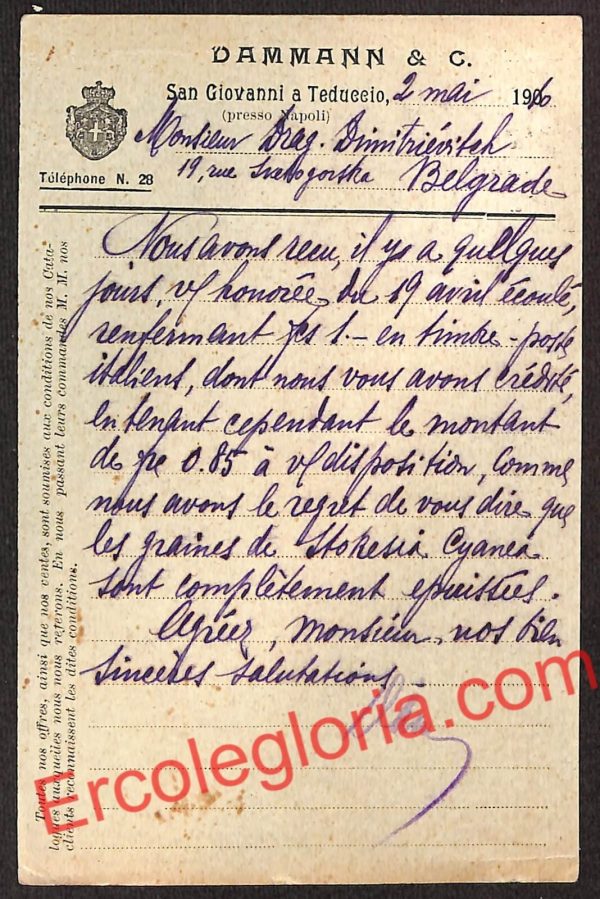 DAMMANN & C.
San Giovanni a Teduccio, 2 mai 1906
(presso Napoli)
Monsieur Drag. Dimitriévitch
Téléphone N. 28
19, rue Svetogorska Belgrade
Nous avons reçu, il y a quelques
jours, v/ honorée du 19 avril écoulé,
renfermant fcs 1.- en timbre-poste
italiens, dont nous vous avons crédité,
en tenant cependant le montant
de fc 0.85 à v/ disposition, comme
nous avons le regret de vous dire que
les graines de Stokesia Cyanea
sont complètement epuisées.
Agréez, Monsieur, nos bien
sincères salutations
Toutes nos offres, ainsi que nos ventes, sont soumises aux conditions de nos Cata-
logues auxquelles nous nous référons. En nous passant leurs commandes M. M. nos
clients reconnaissent les dites conditions.
Ercolegloria.com